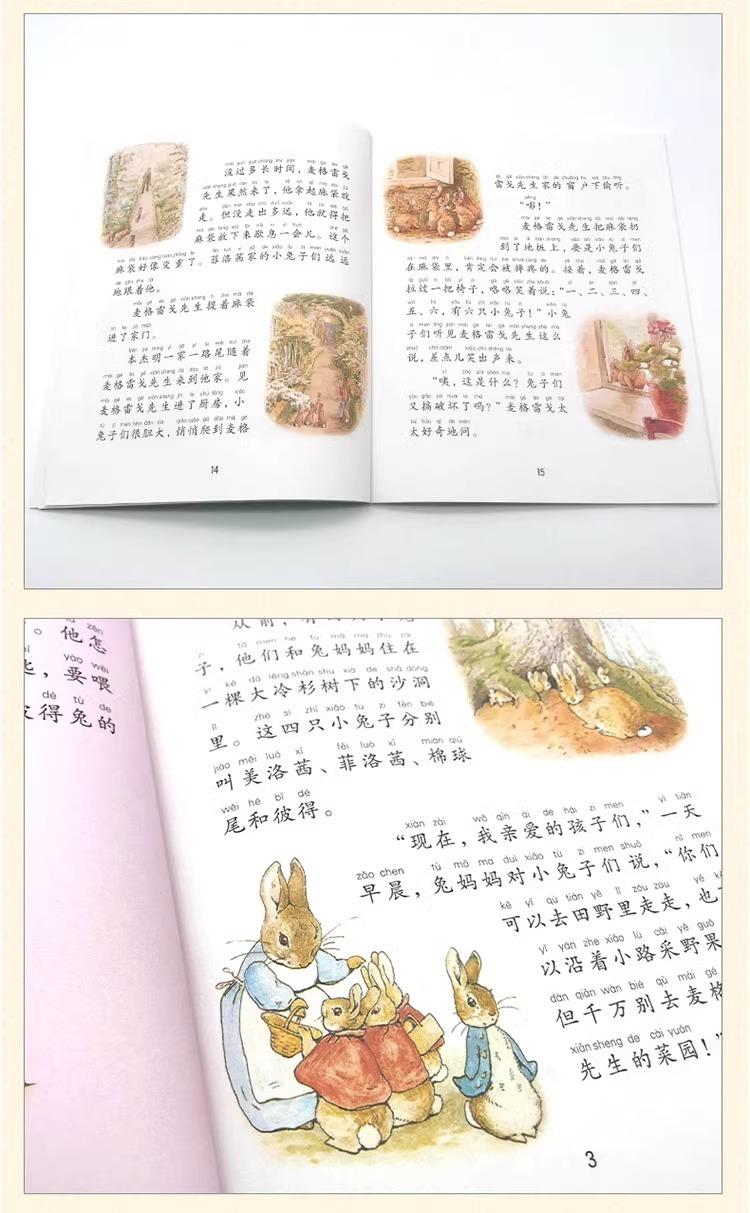 没过多长时间，麦格雷戈
先生果然来了，他拿起麻袋就
走。但没走出多远，他就得把
麻袋放下来歇息一会儿。这个
麻袋好像变重了。菲洛茜家的小兔子们远远
地跟着他。
麦格雷戈先生提着麻袋
进了家门。
本杰明一家一路尾随着
麦格雷戈先生来到他家。见
麦格雷戈先生进了厨房，小
兔子们很胆大，悄悄爬到麦格
14
雷戈先生家的窗户下偷听。
“嘭！”
麦格雷戈先生把麻袋扔
到了地板上，要是小兔子们
在麻袋里，肯定会被摔疼的。接着，麦格雷戈
拉过一把椅子，咯咯笑着说：“一、二、三、四、
五、六，有六只小兔子！”小兔
子们听见麦格雷戈先生这么
说，差点儿笑出声来。
“咦，这是什么？兔子们
又搞破坏了吗？”麦格雷戈太
太好奇地问。
15
zěn
。他怎
yào wèi
，要喂
dé tù de
得兔的
zi tā men hé tù mā ma zhù zài
子，他们和兔妈妈住在
yì kē dà lěng shān shù xià de shā dòng
一棵大冷杉树下的沙洞
lǐ zhè sì zhī xiǎo tù zi fēn bié
里。这四只小兔子分别
jiào měi luò xī fēi luò xī mián qiú
叫美洛茜、菲洛茜、棉球
wěi hé bǐ dé
尾和彼得。
xiàn zài wǒ qīn ài de hái zi men yì tiān
“现在，我亲爱的孩子们，”一天
zǎo chen tù mā ma duì xiǎo tù zi men shuō nǐ men
早晨，兔妈妈对小兔子们说，“你们
kě yǐ qù tián yě lǐ zǒu zou yě
可以去田野里走走，也
yǐ yán zhe xiǎo lù cǎi yě guǒ
以沿着小路采野果
dàn qiān wàn bié qù mài gé
但千万别去麦格
xiān sheng de cài yuán
先生的菜园！”
3